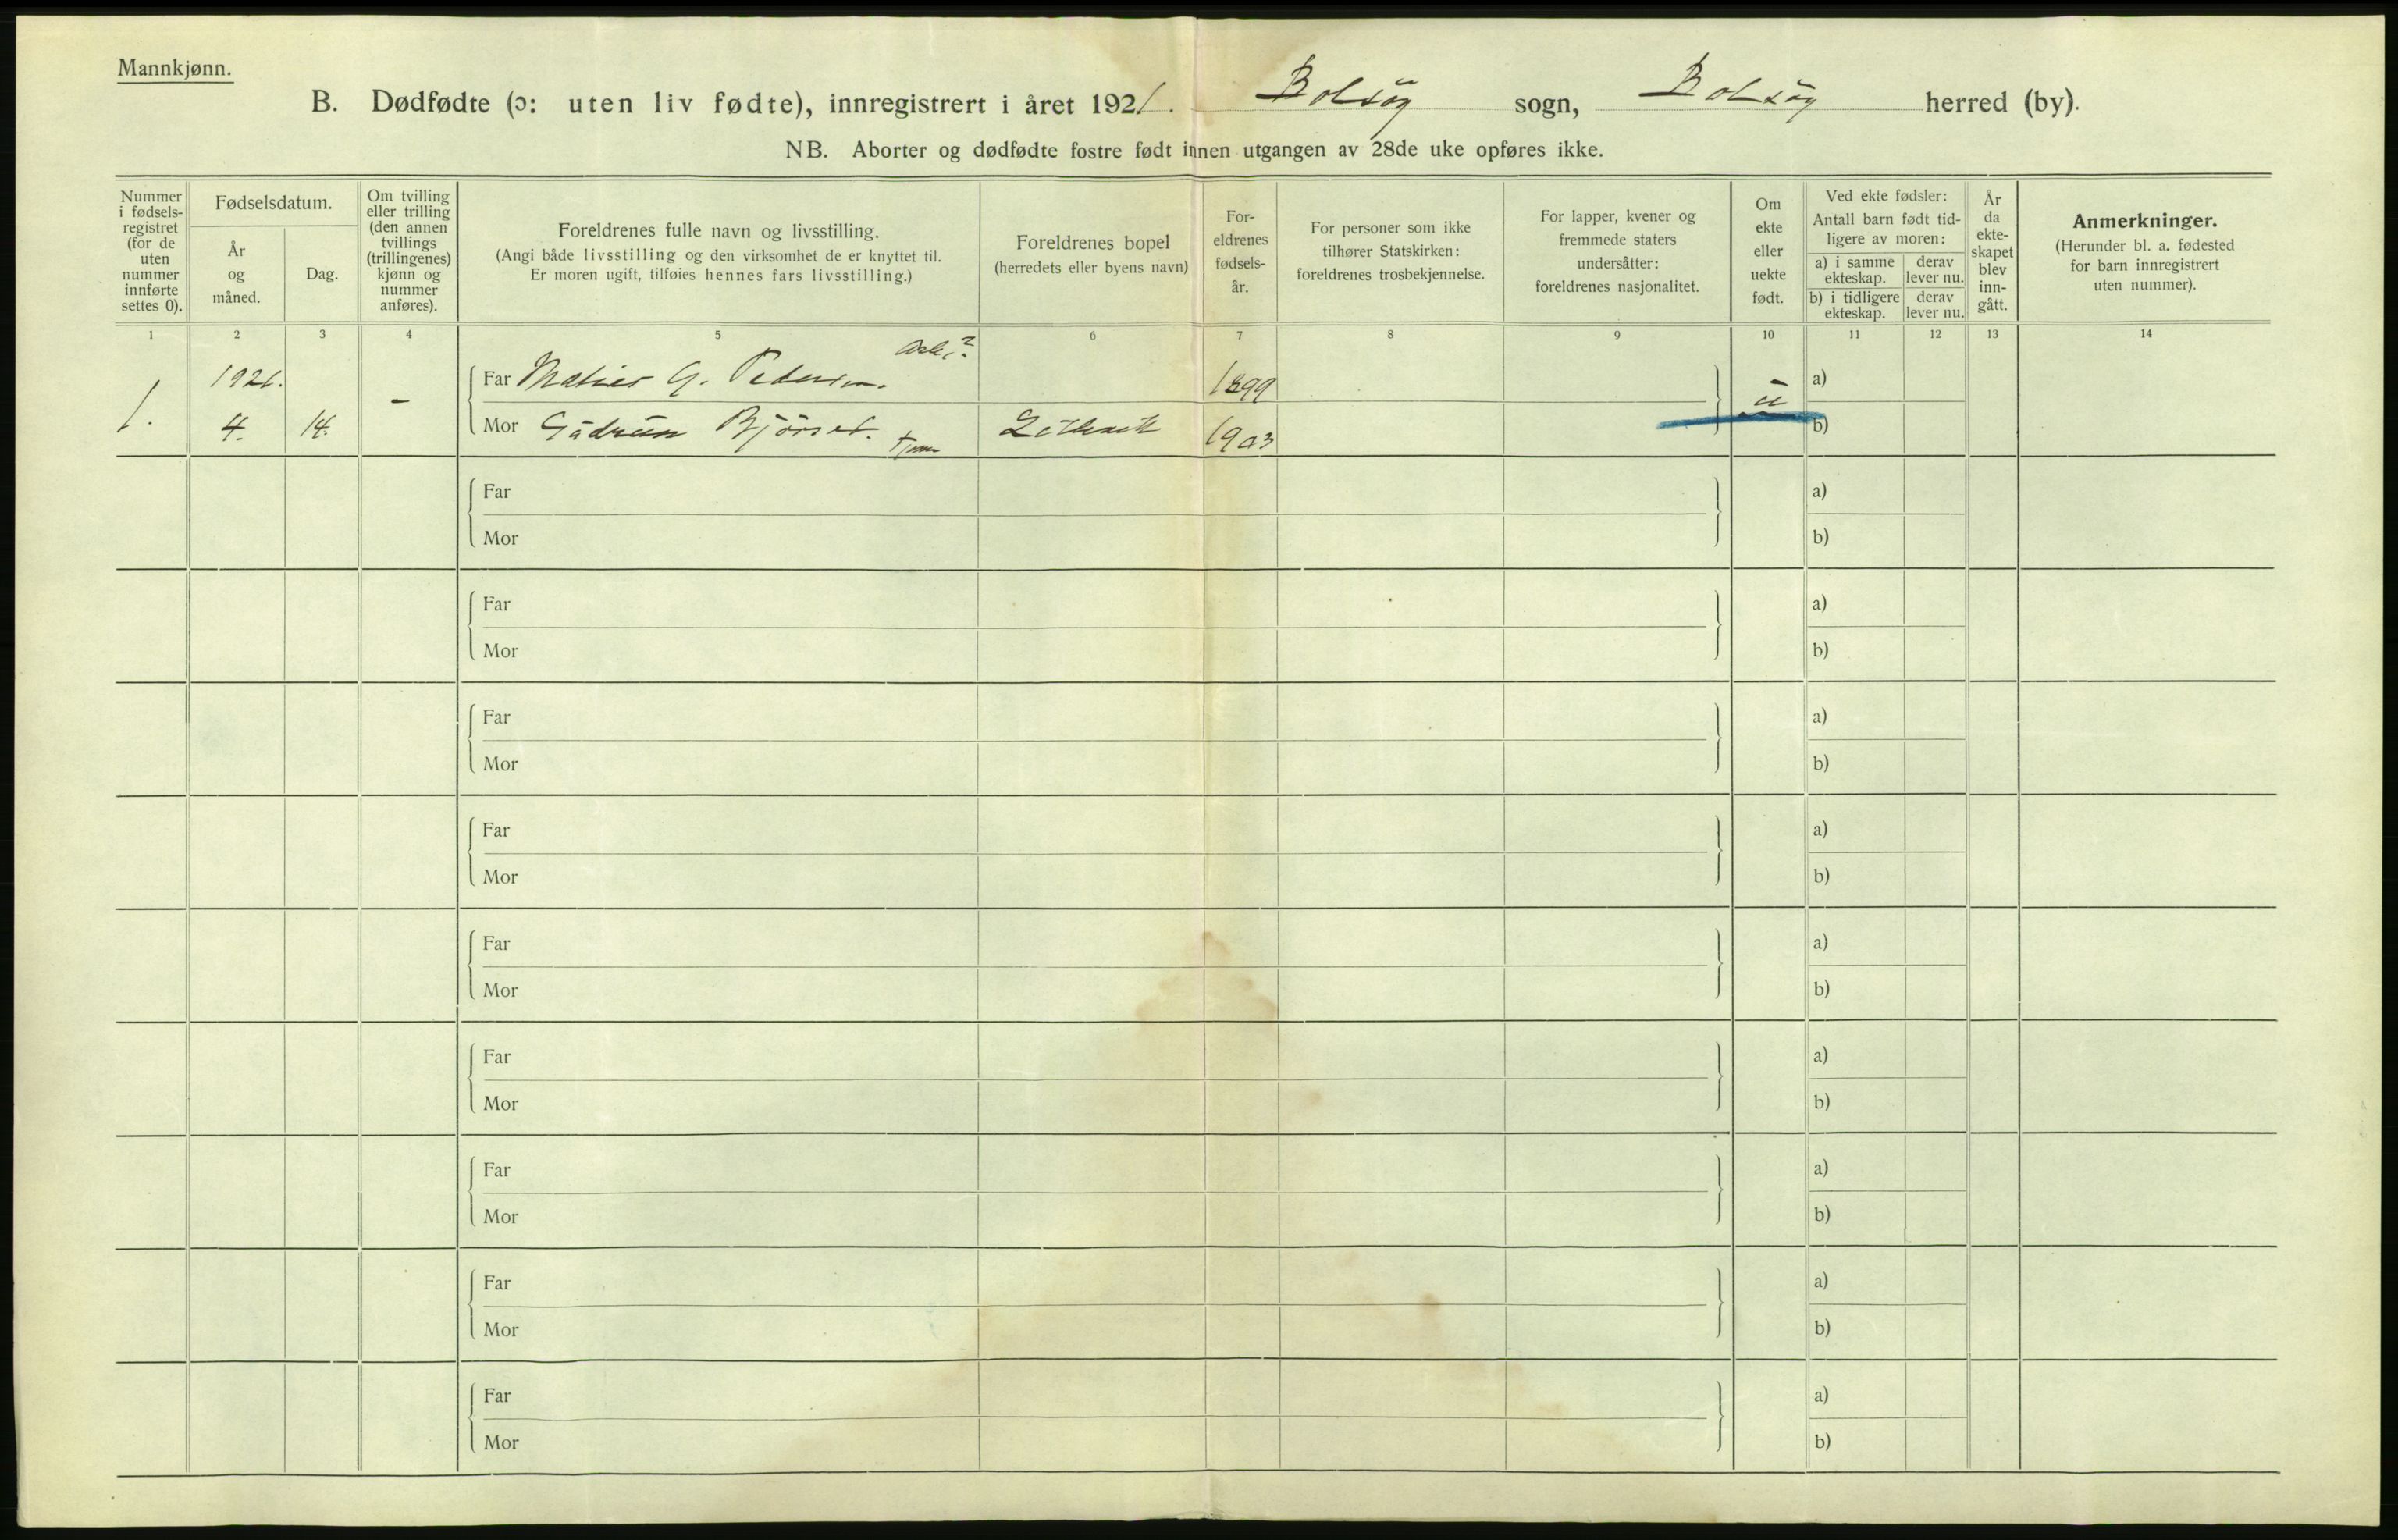 Mannkjønn.
B. Dødfødte (ɔ: uten liv fødte), innregistrert i året 1921. Bolsøy sogn, Bolsøy herred (by).
NB. Aborter og dødfødte fostre født innen utgangen av 28de uke opføres ikke.
Nummer
i fødsels-
registret
(for de
uten
nummer
innførte
settes 0).
Fødselsdatum.
År
og
måned.
Dag.
Om tvilling
eller trilling
(den annen
tvillings
(trillingenes)
kjønn og
nummer
anføres).
Foreldrenes fulle navn og livsstilling.
(Angi både livsstilling og den virksomhet de er knyttet til.
Er moren ugift, tilføies hennes fars livsstilling.)
Foreldrenes bopel
(herredets eller byens navn)
For-
eldrenes
fødsels-
år.
For personer som ikke
tilhører Statskirken:
foreldrenes trosbekjennelse.
For lapper, kvener og
fremmede staters
undersåtter:
foreldrenes nasjonalitet.
Om
ekte
eller
uekte
født.
Ved ekte fødsler:
Antall barn født tid-
ligere av moren:
a) i samme
ekteskap.
derav
lever nu.
b) i tidligere
ekteskap.
derav
lever nu.
År
da
ekte-
skapet
blev
inn-
gått.
Anmerkninger.
(Herunder bl. a. fødested
for barn innregistrert
uten nummer).
1 2 3 4 5 6 7 8 9 10 11 12 13 14
1921. Far G. Pedersen. 1899 u a)
1. 4. 14. - Mor Gudrun Bjørset. 1903 b)
Far a)
Mor b)
Far a)
Mor b)
Far a)
Mor b)
Far a)
Mor b)
Far a)
Mor b)
Far a)
Mor b)
Far a)
Mor b)
Far a)
Mor b)
Far a)
Mor b)